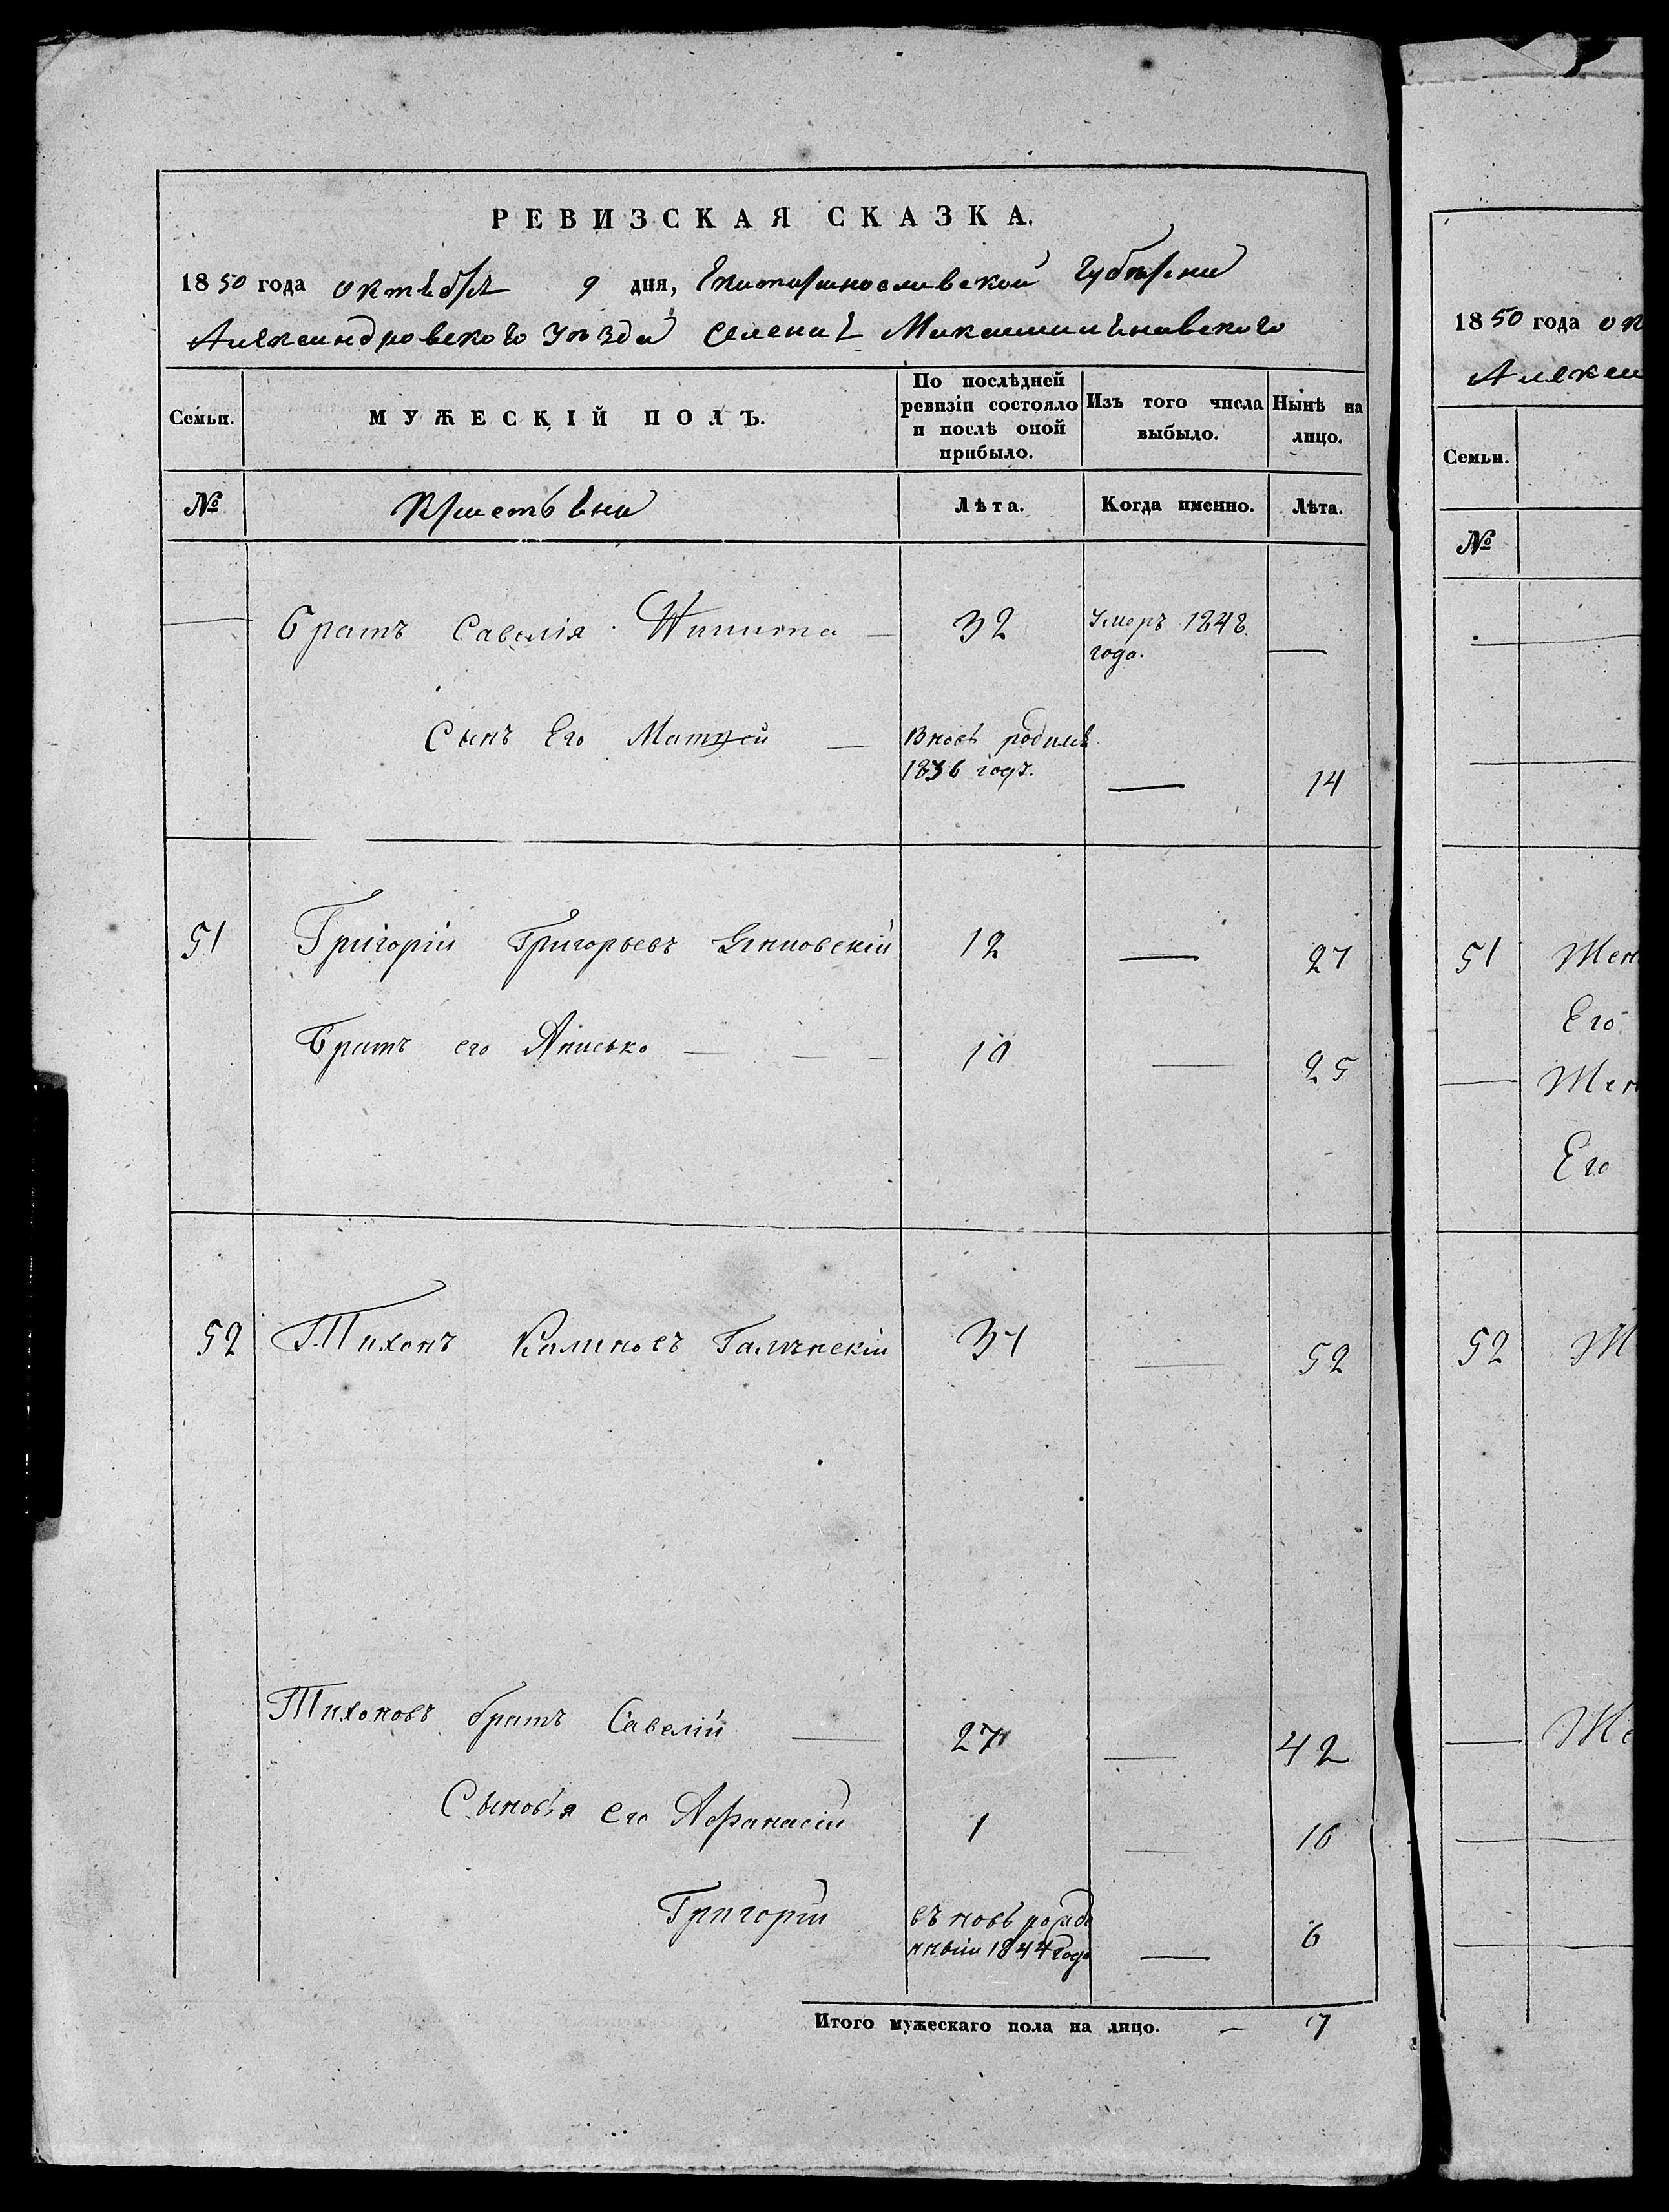 РЕВИЗСКАЯ СКАЗКА.
1850 года октября 9 дня, Екатеринославской Губернии
Александровского Уезда Селения
Семьи. МУЖЕСКІЙ ПОЛЪ. По послѣдней ревизіи состояло и послѣ оной прибыло. Изъ того числа выбыло. Нынѣ на лицо.
№ Крестьяни Лѣта. Когда именно. Лѣта.
Братъ Савелія Никита 32 Умеръ 1848 года.
Сынъ Его Матвей Вновь родился 1836 годъ. 14
51 Григорій Григорьевъ 12 27
Братъ его 10 25
52 Тихонъ 37 52
Тихоновъ братъ Савелій 27 42
Сыновья его Афанасій 1 16
Григорій въ новь рожденный 1844 года 6
Итого мужескаго пола на лицо. 7
1850 года ок
Алексан
Семьи.
№
51 Жен
Его
Жен
Его
52 Ж
Же